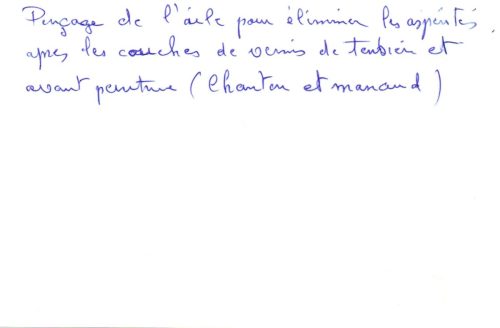 Ponçage de l'aile pour éliminer les aspérités
apres les couches de vernis de tendeur et
avant peinture (Chanton et manaud)